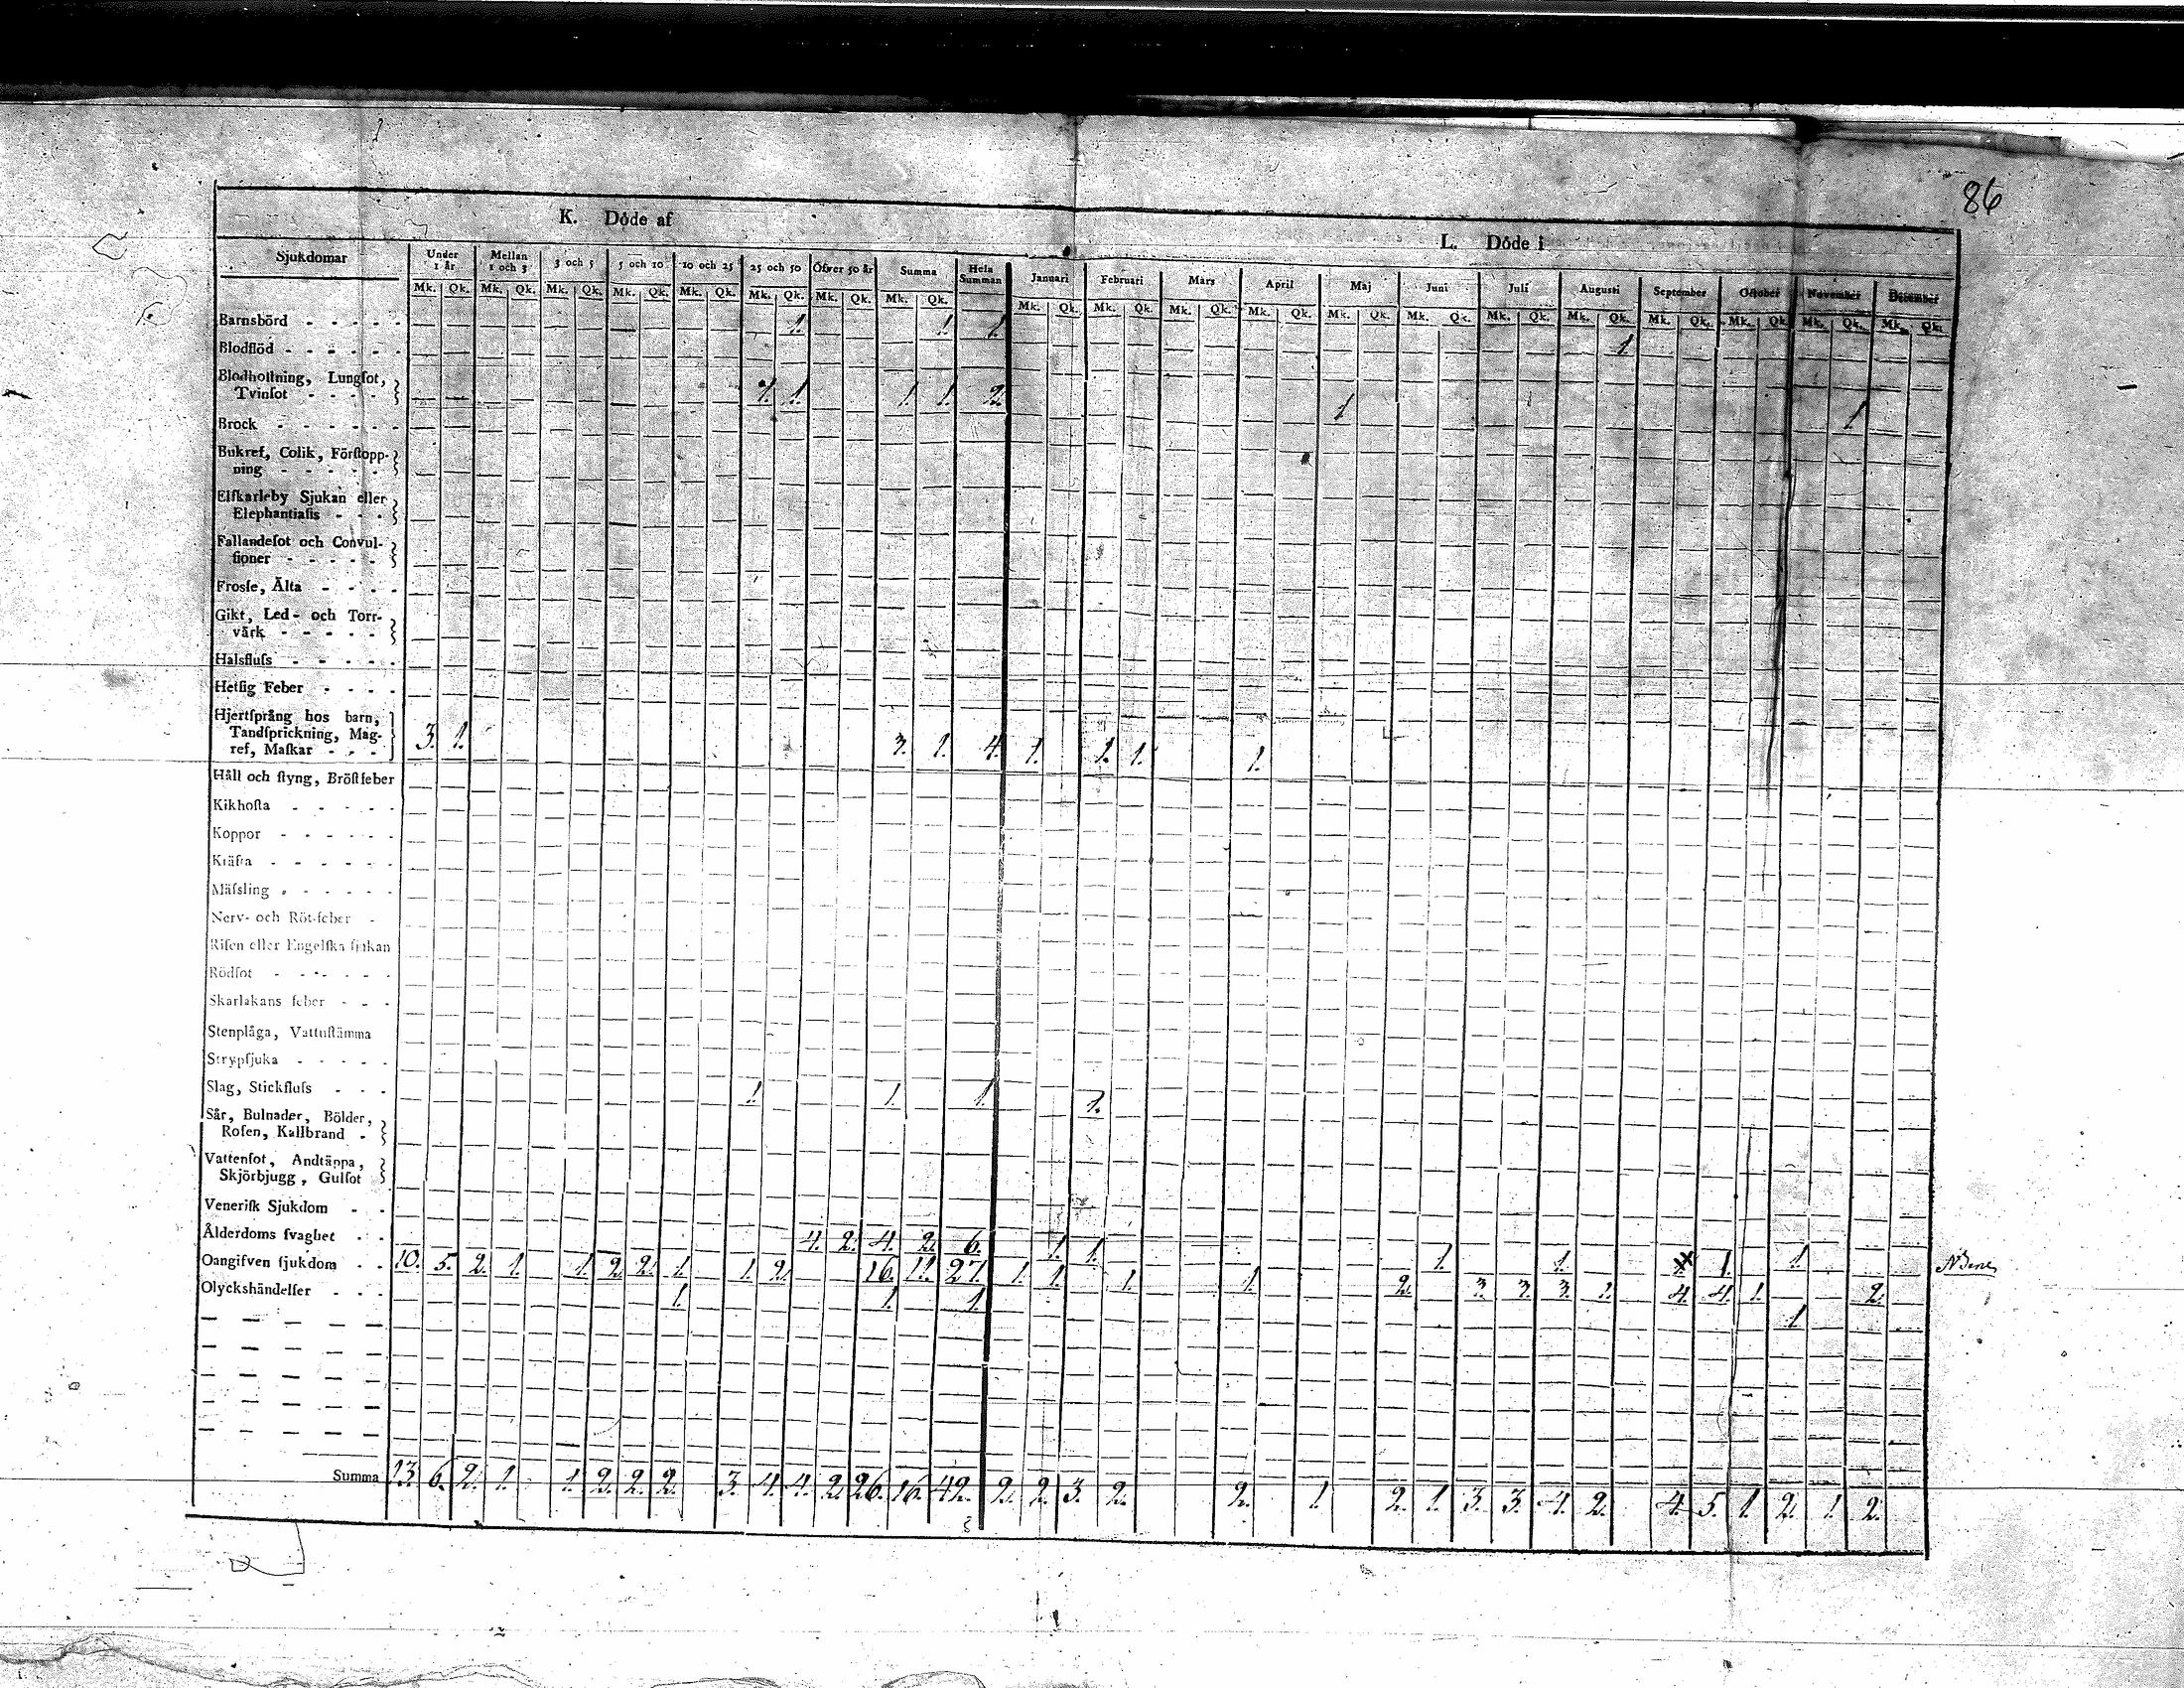 86
K. Döde af
L. Döde i
Sjukdomar Under 1 år Mellan 1 och 3 3 och 5 5 och 10 10 och 25 25 och 50 Öfver 50 år Summa Hela Summan Januari Februari Mars April Maj Juni Juli Augusti September October November December
Mk. Qk. Mk. Qk. Mk. Qk. Mk. Qk. Mk. Qk. Mk. Qk. Mk. Qk. Mk. Qk. Mk. Qk. Mk. Qk. Mk. Qk. Mk. Qk. Mk. Qk. Mk. Qk. Mk. Qk. Mk. Qk. Mk. Qk. Mk. Qk. Mk. Qk. Mk. Qk.
Barnsbörd - - - - - 1. 1. 1. 1.
Blodflöd - - - - - -
Blodhoſtning, Lungſot,
Tvinſot - - - - 1. 1. 1. 1. 2. 1 1.
Brock - - - - - -
Bukref, Colik, Förſtopp-
ning - - - - -
Elfkarleby Sjukan eller
Elephantiaſis - - -
Fallandeſot och Convul-
ſioner - - - - -
Frosſe, Älta - - - -
Gikt, Led- och Torr-
värk - - - - -
Halsfluſs - - - - -
Hetſig Feber - - - -
Hjertſprång hos barn,
Tandſprickning, Mag-
ref, Maſkar - - - 3. 1. 3. 1. 4. 1. 1. 1. 1.
Håll och ſtyng, Bröſtfeber
Kikhoſta - - - - -
Koppor - - - - - -
Kräfta - - - - - -
Mäſsling - - - - - -
Nerv- och Röt-feber -
Riſen eller Engelſka ſjukan
Rödſot - - - - - -
Skarlakans feber - - -
Stenplåga, Vattuſtämma
Strypſjuka - - - - -
Slag, Stickfluſs - - - 1. 1. 1. 1.
Sår, Bulnader, Bölder,
Roſen, Kallbrand -
Vattenſot, Andtäppa,
Skjörbjugg, Gulſot
Veneriſk Sjukdom - -
Ålderdoms ſvaghet - - 4. 2. 4. 2. 6. 1. 1. 1. 1. 1. 1.
Oangifven ſjukdom - - 10. 5. 2. 1. 1. 2. 2. 1. 1. 2. 16. 11. 27. 1. 1. 1. 1. 2. 3. 3. 3. 2. 4. 4. 1. 2.
Olyckshändelſer - - - 1. 1. 1. 1.
Summa 13. 6. 2. 1. 1. 2. 2. 2. 3. 4. 4. 2. 26. 16. 42. 2. 2. 3. 2. 2. 1. 2. 1. 3. 3. 4. 2. 4. 5. 1. 2. 1. 2.